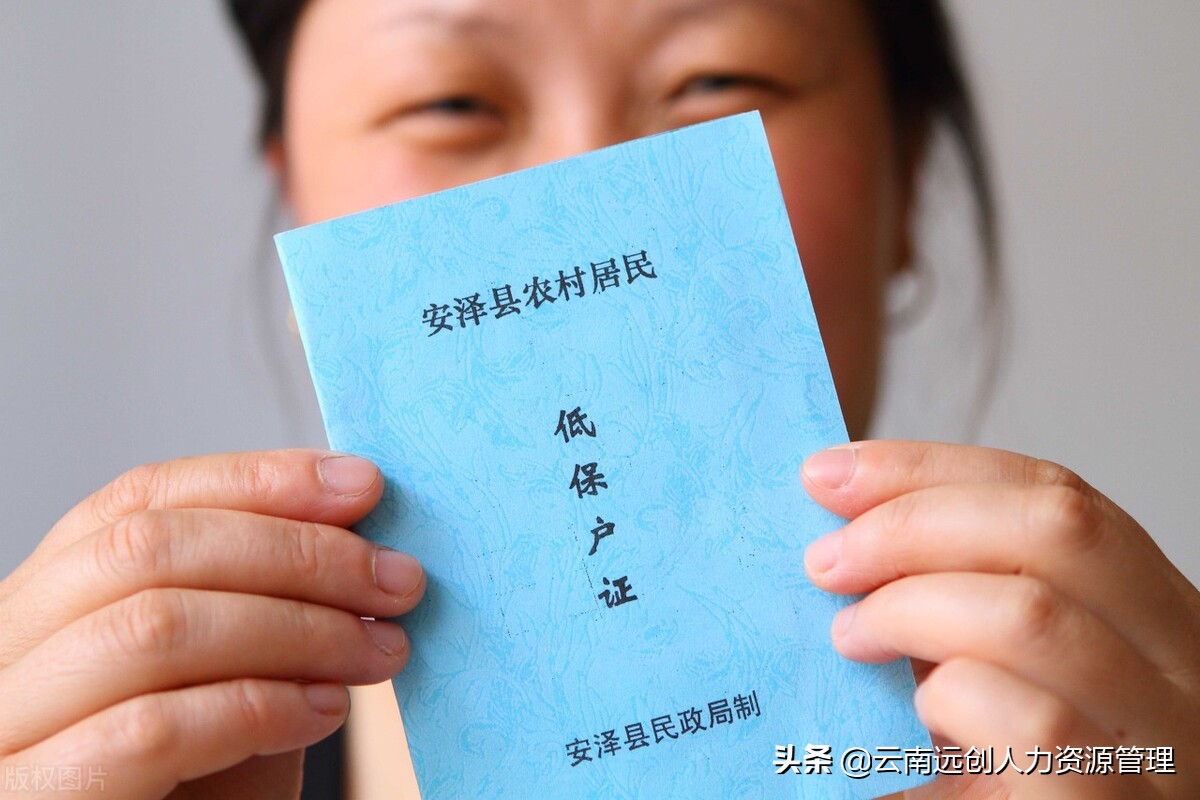 安泽县农村居民
低
保
户
证
安泽县民政局制
头条 @云南远创人力资源管理
版权图片